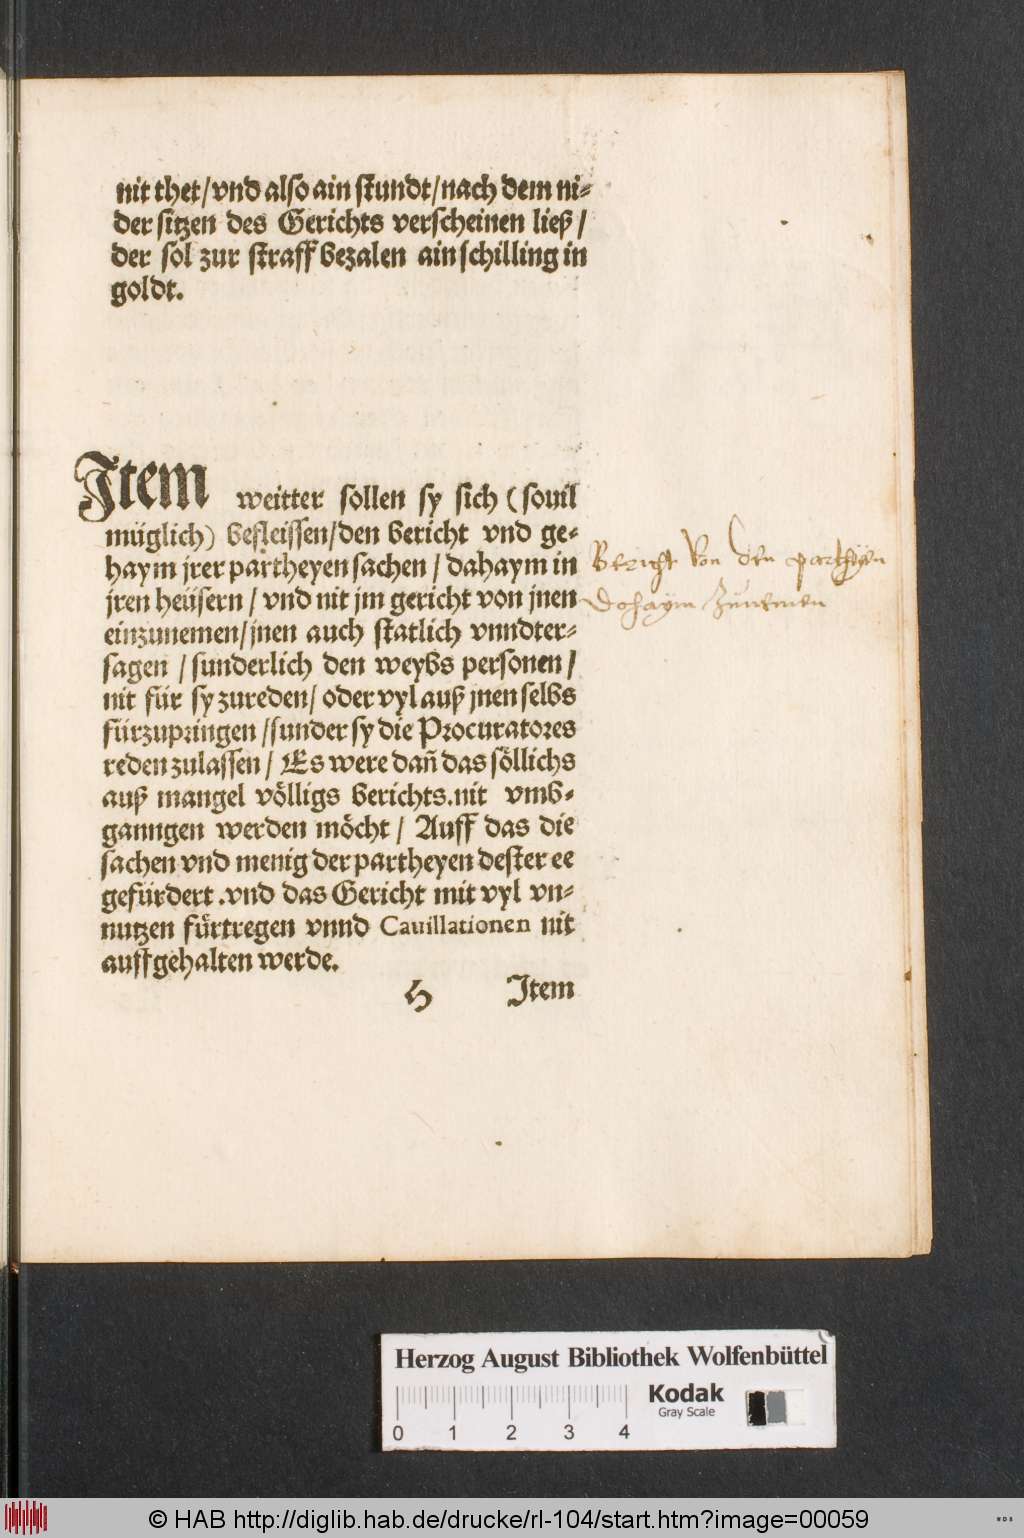 nit thet/vnd also ain stundt/nach dem ni-
der sitzen des Gerichts verscheinen ließ /
der sol zur straff bezalen ain schilling in
goldt.
Item weitter sollen sy sich (souil
müglich) befleissen/den bericht vnd ge-
haym jrer partheyen sachen / dahaym in
jren heüsern / vnd nit jm gericht von jnen
einzunemen/jnen auch statlich vnndter-
sagen / sunderlich den weybs personen /
nit für sy zureden/ oder vyl auß jnen selbs
fürzupringen /sunder sy die Procuratores
reden zulassen / Es were dañ das söllichs
auß mangel völligs berichts.nit vmb-
ganngen werden möcht / Auff das die
sachen vnd menig der partheyen dester ee
gefürdert .vnd das Gericht mit vyl vn-
nutzen fürtregen vnnd Cauillationen nit
auffgehalten werde.
H Item
Bericht von den partheyen
Dohaym Zunemen
Herzog August Bibliothek Wolfenbüttel
0 1 2 3 4
Kodak
Gray Scale
© HAB http://diglib.hab.de/drucke/rl-104/start.htm?image=00059
WDB